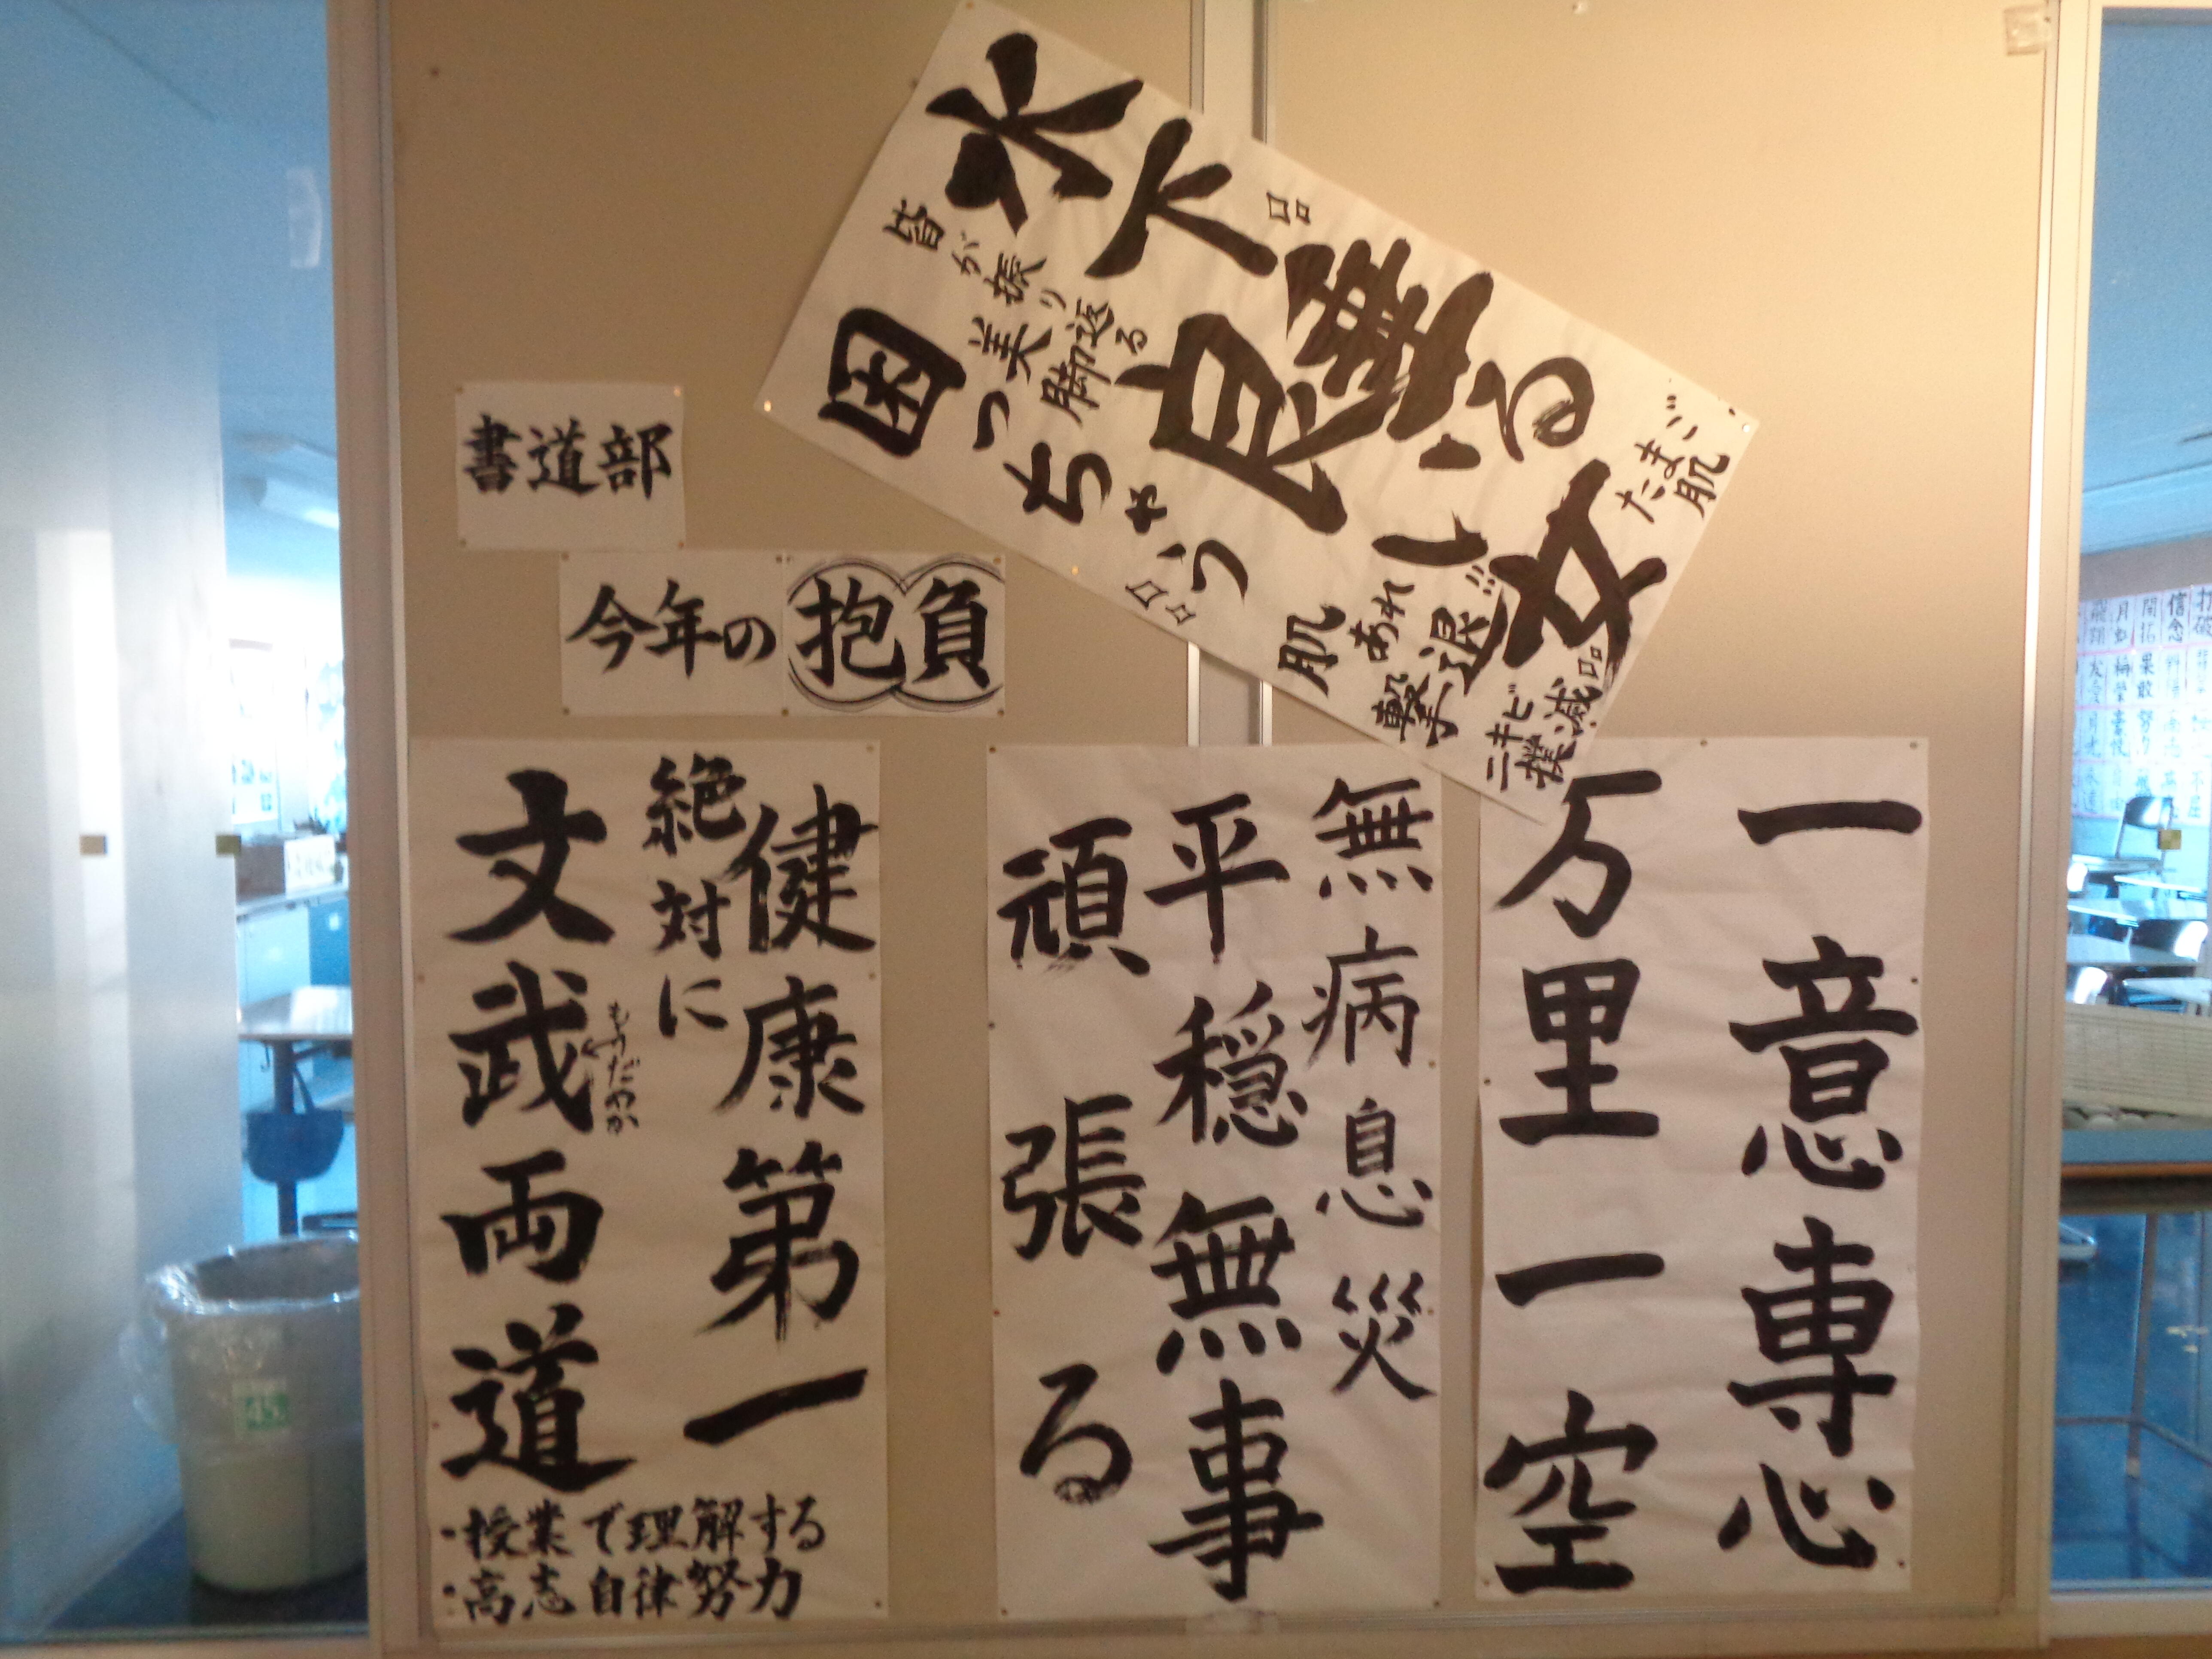 書道部
今年の抱負
皆が振り返る
美脚
困っちゃう
たまご肌
肌あれ
撃退!!
ニキビ
撲滅
一意専心
万里一空
無病息災
平穏無事
頑張る
健康第一
絶対に
文武両道
・授業で理解する
・高志 自律 努力
45